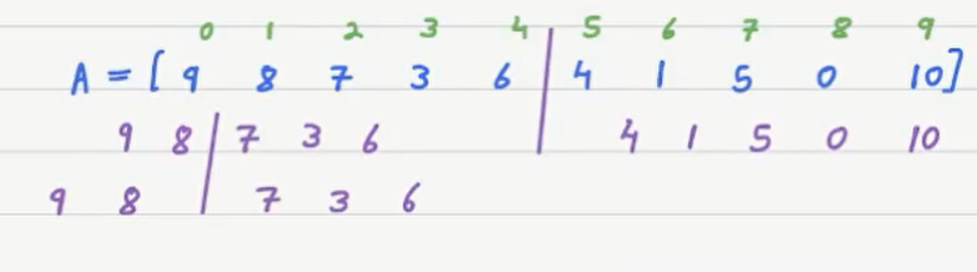 0 1 2 3 4 5 6 7 8 9
A = [ 9 8 7 3 6 | 4 1 5 0 10 ]
9 8 | 7 3 6 4 1 5 0 10
9 8 7 3 6